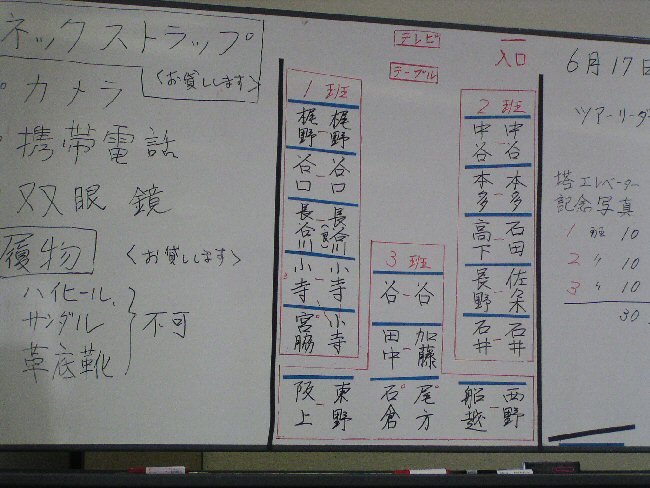 ネックストラップ
〈お貸しします〉
カメラ
携帯電話
双眼鏡
履物 〈お貸しします〉
ハイヒール、
サンダル
革底靴
不可
テレビ
テーブル
入口
1 班
梶野 梶野
谷口 谷口
長谷川 長谷川
小寺 小寺
宮脇 小寺
3 班
谷 谷
田中 加藤
2 班
中谷 中谷
本多 本多
高下 石田
長野 佐条
石井 石井
阪上 東野
石倉 尾方
船越 西野
6月17日
ツアーリーダ
塔エレベーター
記念写真
1 班 10
2 〃 10
3 〃 10
30